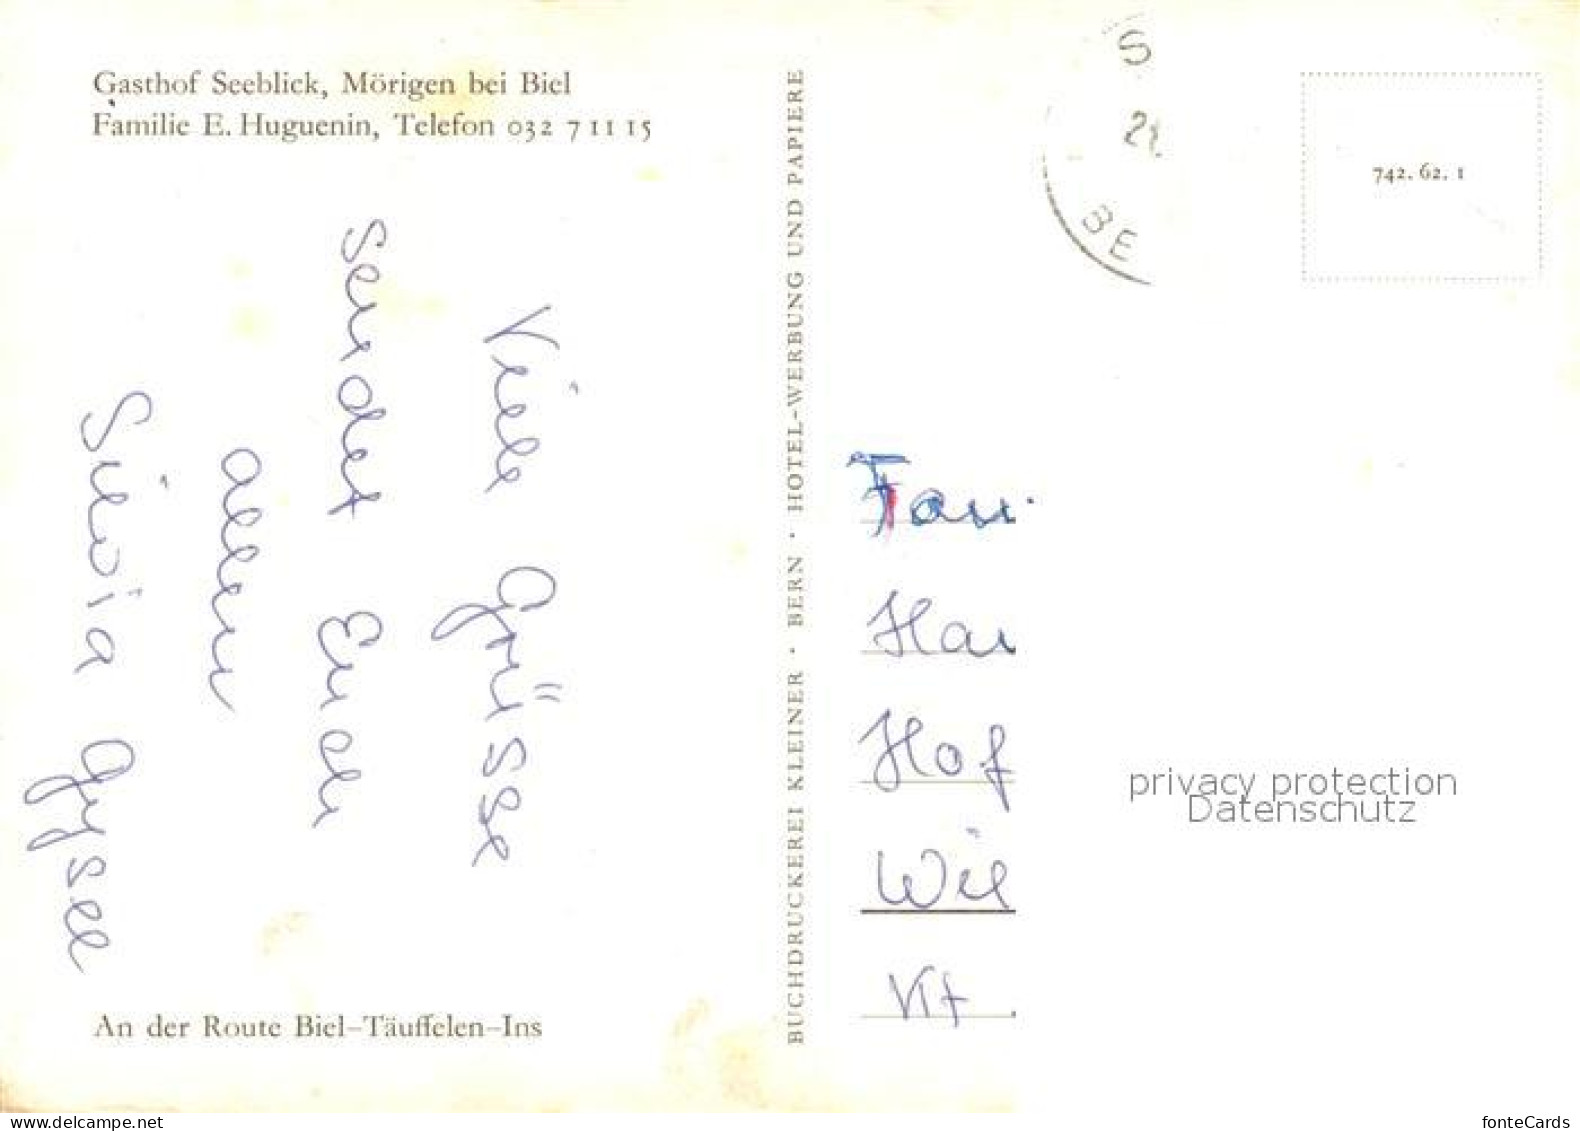 Gasthof Seeblick, Mörigen bei Biel
Familie E. Huguenin, Telefon 032 7 11 15
Viele Grüsse
sendet Euch
allen
Silvia Gysel
An der Route Biel–Täuffelen–Ins
BUCHDRUCKEREI KLEINER · BERN · HOTEL-WERBUNG UND PAPIERE
S
21.
BE
742. 62. 1
Fam.
Hof
Wil
Kt.
privacy protection
Datenschutz
www.delcampe.net
fonteCards